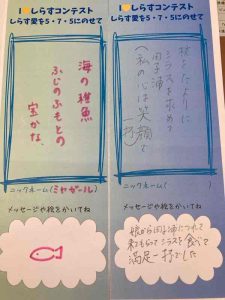 I しらすコンテスト
しらす愛を5・7・5にのせて
海の稚魚
ふじのふもとの
宝かな
ニックネーム(ミヤガール)
メッセージや絵をかいてね
I しらすコンテスト
しらす愛を5・7・5にのせて
シラスを求めて
田子浦
(私の心は笑顔で
一杯)
ニックネーム( )
メッセージや絵をかいてね
娘から田子浦につれて
来てもらってシラスを食べて
満足一杯でした